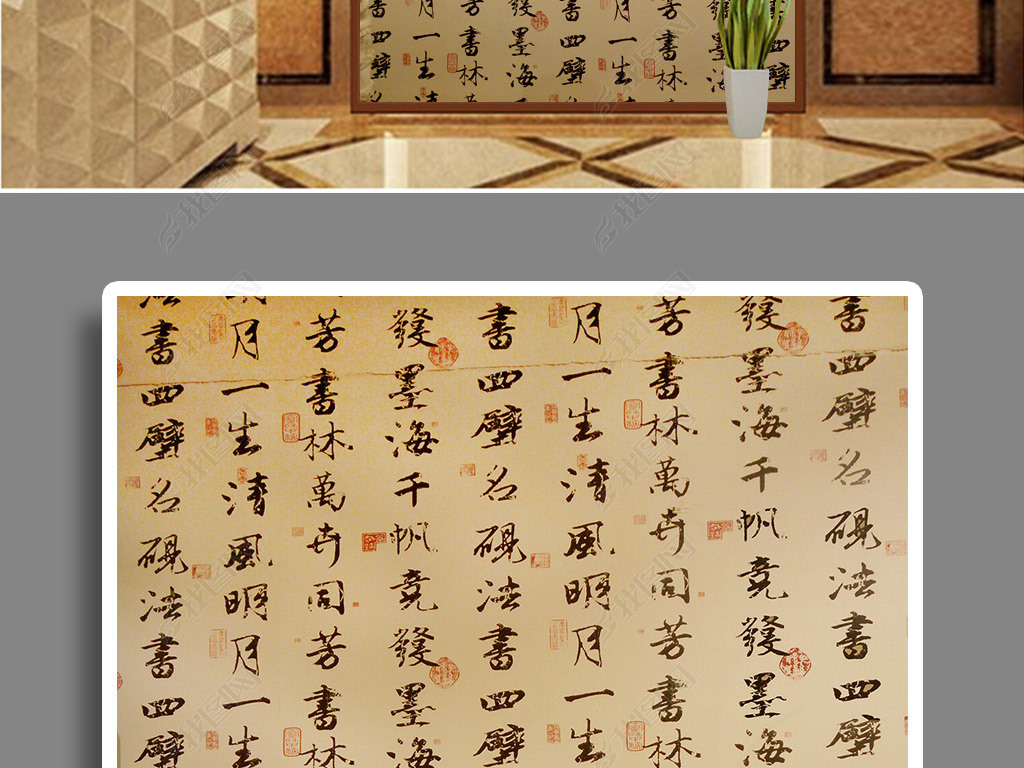 壁
芳書林
月一生
書四壁
發墨海
芳書林
月一生
書四壁
書四壁名硯法書四壁
發墨海千帆竞發墨海
芳書林萬卉同芳書林
月一生清風明月一生
書四壁名硯法書四壁
發墨海千帆竞發墨海
芳書林萬卉同芳書林
月一生清風明月一生
書四壁名硯法書四壁